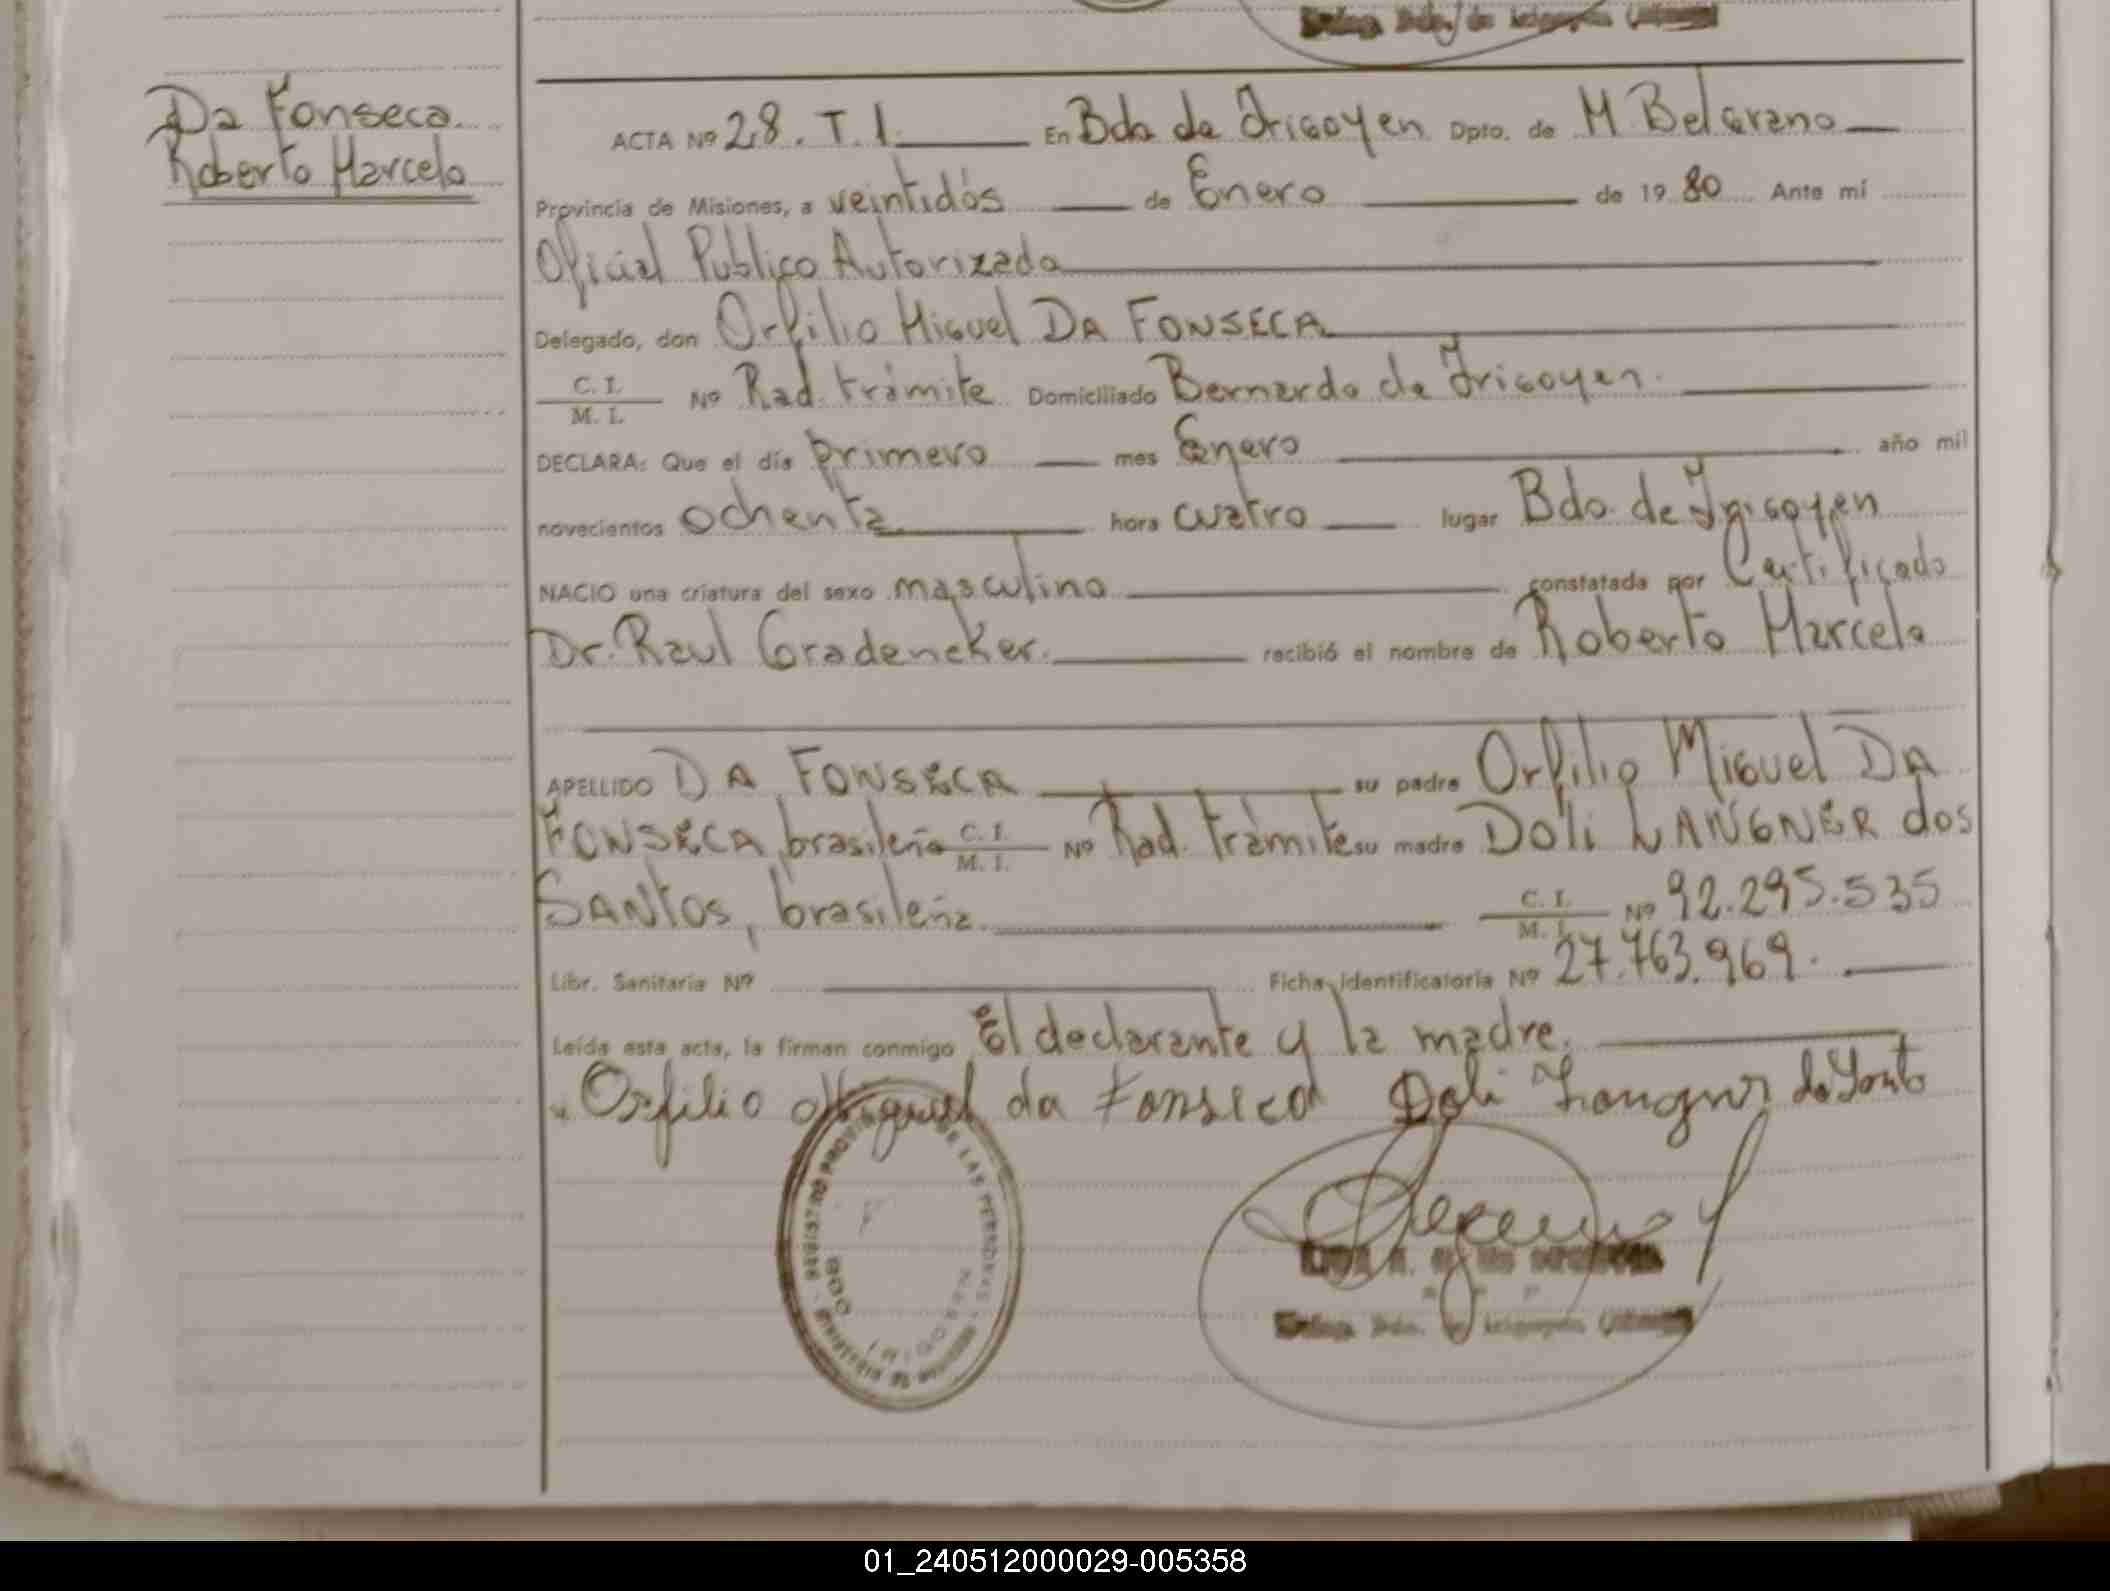 Da Fonseca.
Roberto Marcelo
ACTA Nº 28. T. I. En Bdo de Irigoyen Dpto. de M Belgrano
Provincia de Misiones, a veintidós de Enero de 19 80 Ante mí
Oficial Público Autorizada
Delegado, don Orfilio Miguel DA FONSECA
C. I. / M. I. Nº Rad. trámite Domiciliado Bernardo de Irigoyen.
DECLARA: Que el día primero mes Enero año mil
novecientos ochenta hora cuatro lugar Bdo. de Irigoyen
NACIO una criatura del sexo masculino constatada por Certificado
Dr. Raul Gradeneker. recibió el nombre de Roberto Marcelo
APELLIDO DA FONSECA su padre Orfilio Miguel DA
FONSECA, brasileño C. I. / M. I. Nº Rad. trámite su madre Doli LANGNER dos
SANTOS, brasileña. C. I. / M. I. Nº 92.295.535
Libr. Sanitaria Nº Ficha Identificatoria Nº 27.763.969.
Leída esta acta, la firman conmigo El declarante y la madre.
Orfilio Miguel da Fonseca Doli Langner
REGISTRO PROVINCIAL DE LAS PERSONAS
01_240512000029-005358